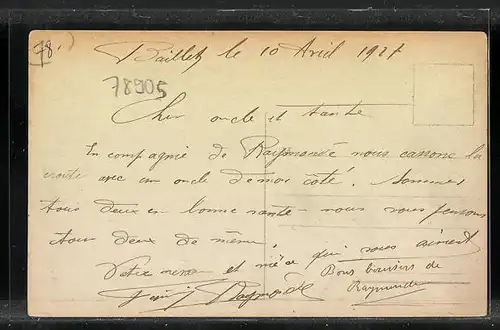 78.
Baillet le 10 Avril 1927
78905
Cher oncle et tante
En compagnie de Raymonde nous cassons la
croute avec un oncle de mon côté. Sommes
tous deux en bonne santé - nous vous pensons
tous deux de même.
Votre neveu et nièce qui vous aiment
Raymonde
Bons baisers de
Raymonde